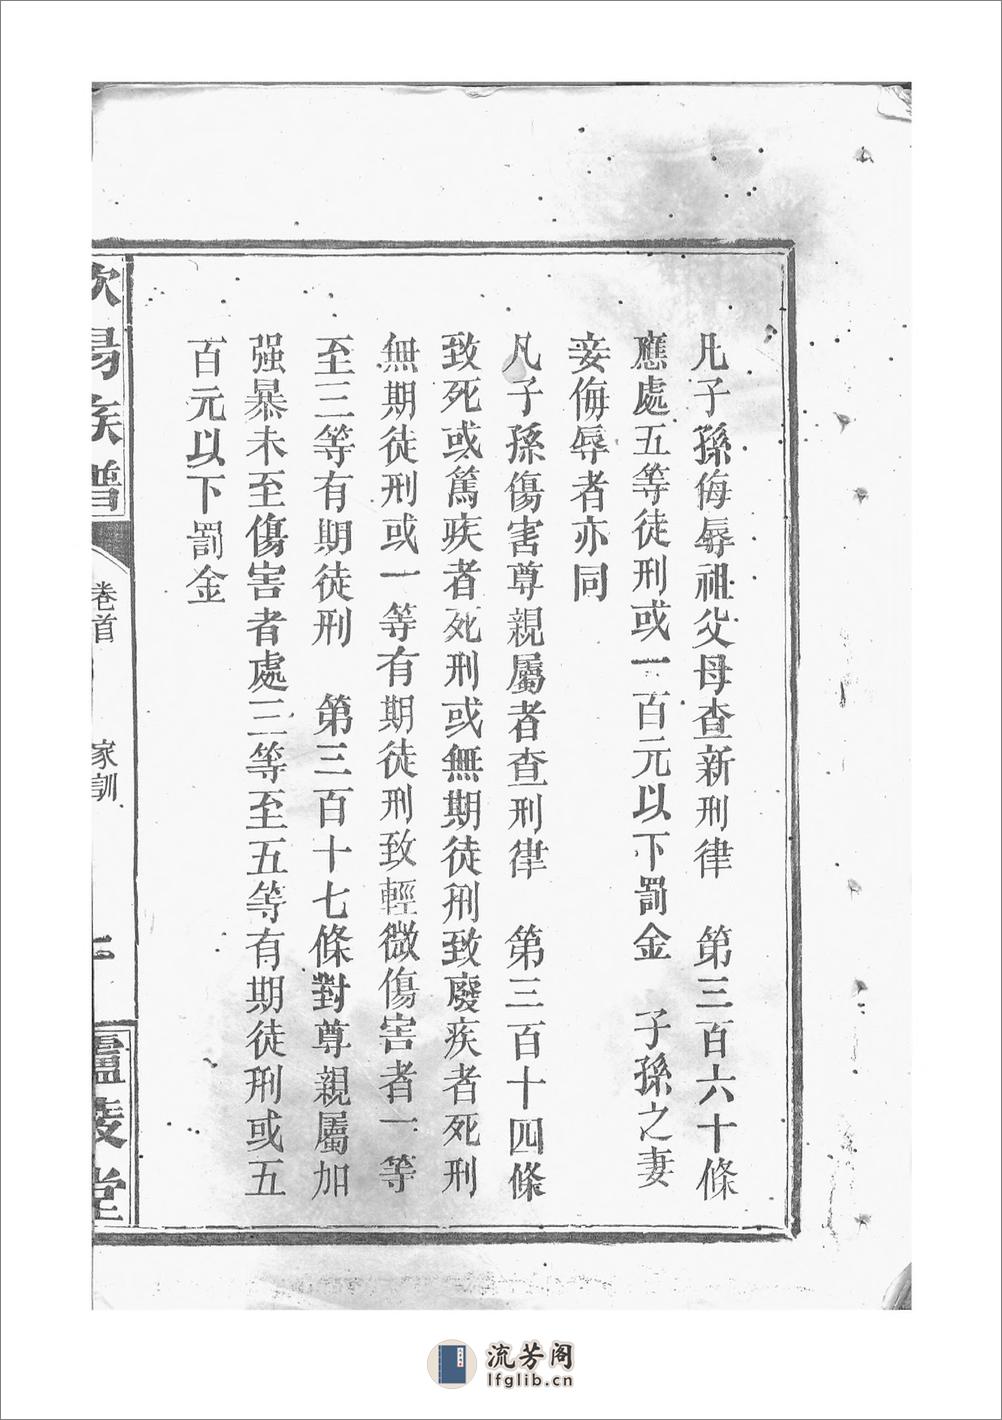 凡子孫侮辱祖父母查新刑律　第三百六十條
應處五等徒刑或一百元以下罰金　子孫之妻
妾侮辱者亦同
凡子孫傷害尊親屬者查刑律　第三百十四條
致死或篤疾者死刑或無期徒刑致廢疾者死刑
無期徒刑或一等有期徒刑致輕微傷害者一等
至三等有期徒刑　第三百十七條對尊親屬加
强暴未至傷害者處三等至五等有期徒刑或五
百元以下罰金
歐陽族譜
卷首
家訓
廬陵堂
流芳阁
lfglib.cn